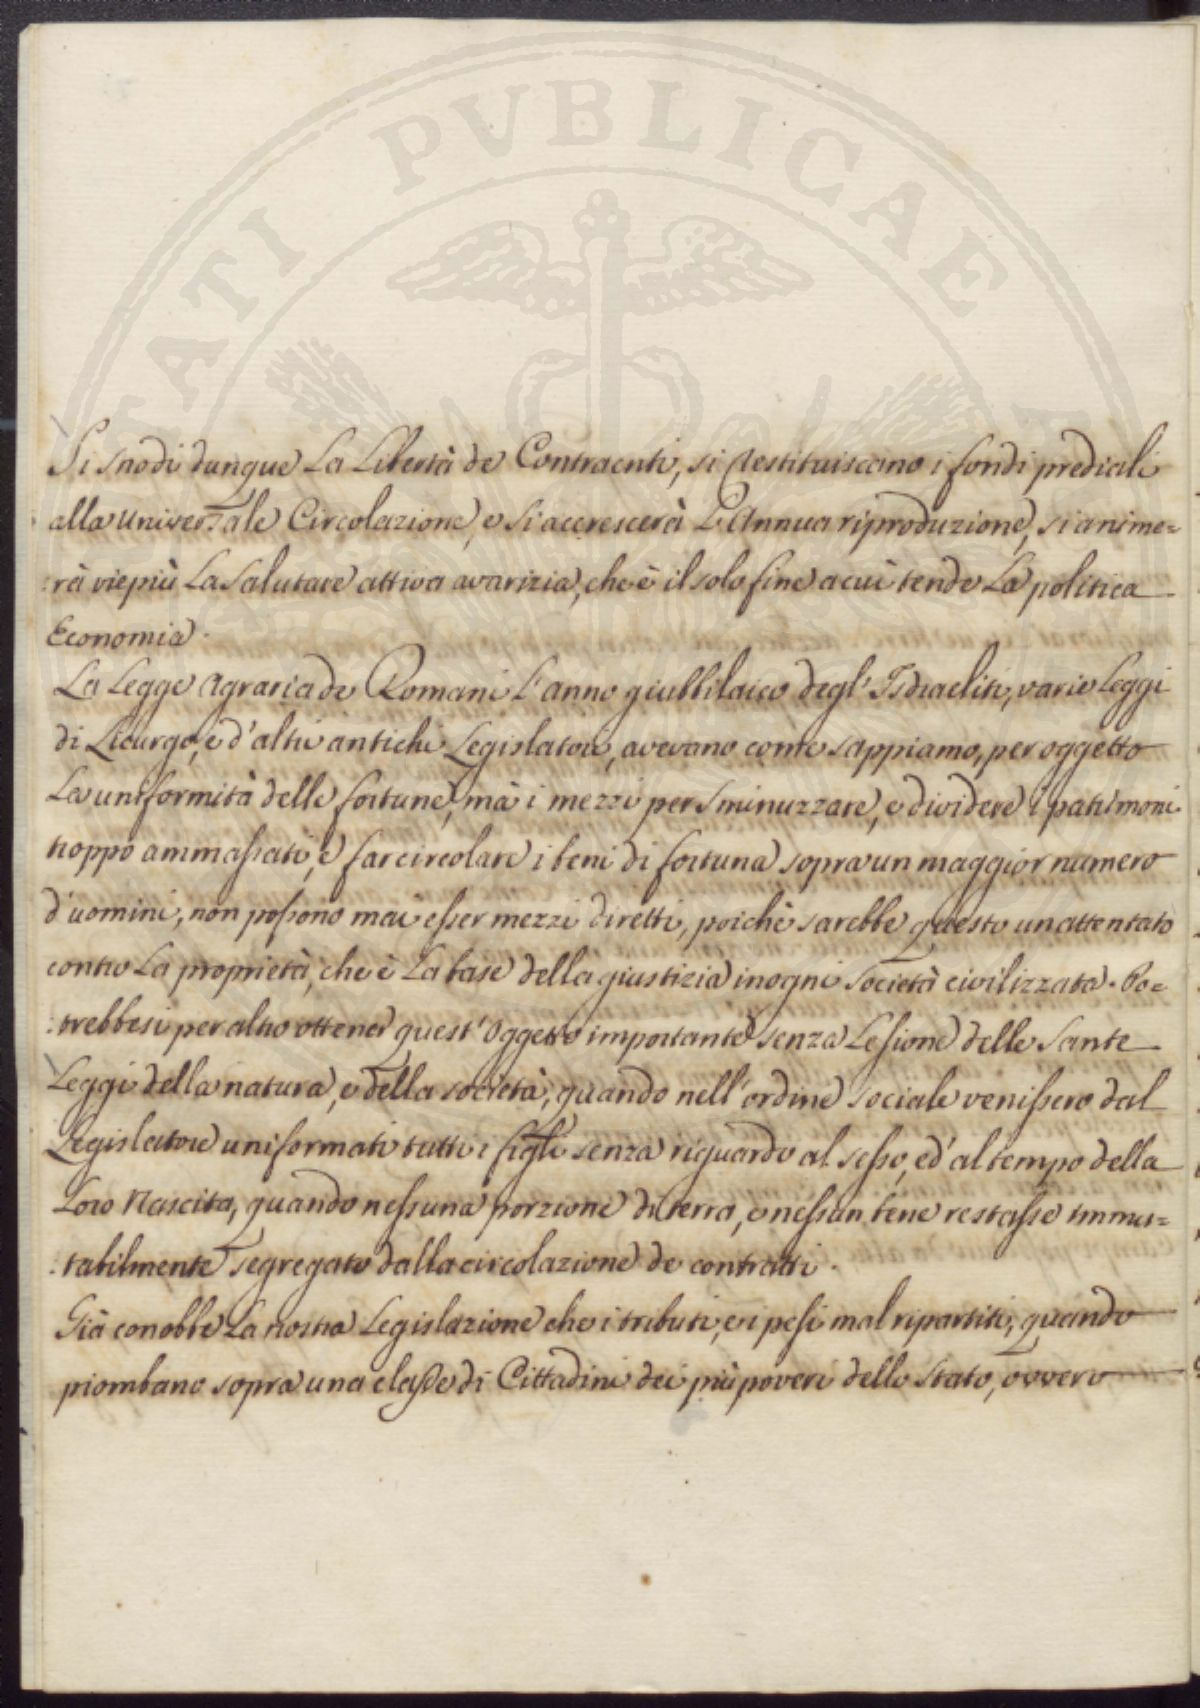 TATI PVBLICAE
Si snodi dunque La Libertà de Contraenti, si restituiscano i fondi prediali
alla universale Circolazione, e si accrescerà L'Annua riproduzione, si anime=
:rà viepiù La Salutare attiva avarizia, che è il solo fine a cui tende La politica
Economia.
La Legge Agraria de Romani L'anno giubbilaico degl' Isdraeliti, varie Leggi
di Licurgo, e d'altri antichi Legislatori, avevano come sappiamo, per oggetto
La uniformità delle fortune, mà i mezzi per sminuzzare, e dividere i patrimoni
troppo ammassati, e far circolare i beni di fortuna sopra un maggior numero
d'uomini, non possono mai esser mezzi diretti, poichè sarebbe questo un attentato
contro La proprietà, che è La base della giustizia in ogni Società civilizzata. Po=
:trebbesi per altro ottener quest'Oggetto importante senza Lesione delle Sante
Leggi della natura, e della società, quando nell'ordine sociale venissero dal
Legislatore uniformati tutti i figli senza riguardo al sesso, ed al tempo della
Loro Nascita, quando nessuna porzione di terra, e nessun bene restasse immu=
:tabilmente segregato dalla circolazione de contratti.
Già conobbe La nostra Legislazione che i tributi, e i pesi mal ripartiti, quando
piombano sopra una classe di Cittadini dei più poveri dello Stato, ovvero